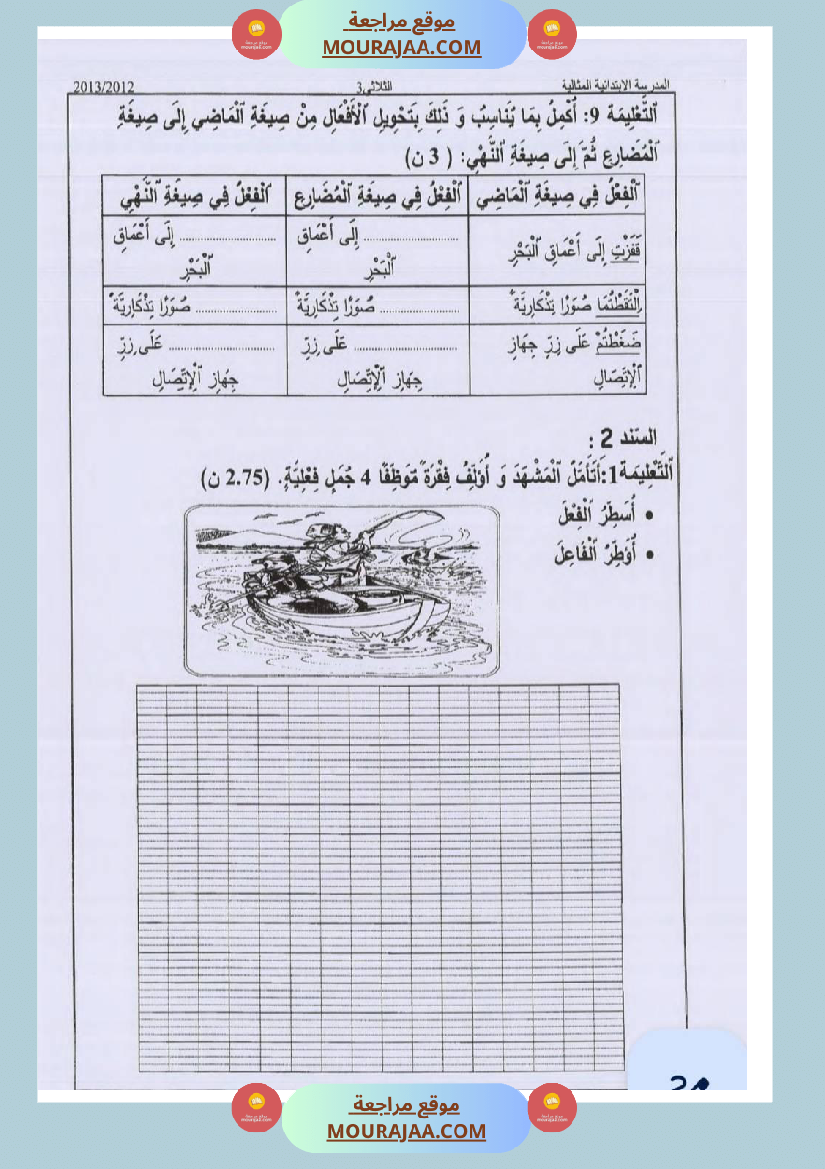 موقع مراجعة
MOURAJAA.COM
المدرسة الابتدائية المثالية الثلاثي3 2013/2012
اَلتَّعْلِيمَة 9: أُكْمِلُ بِمَا يُنَاسِبُ وَ ذَلِكَ بِتَحْوِيلِ اَلْأَفْعَالِ مِنْ صِيغَةِ اَلْمَاضِي إِلَى صِيغَةِ
اَلْمُضَارِعِ ثُمَّ إِلَى صِيغَةِ اَلنَّهْيِ: ( 3 ن)
اَلْفِعْلُ فِي صِيغَةِ اَلْمَاضِي اَلْفِعْلُ فِي صِيغَةِ اَلْمُضَارِعِ اَلْفِعْلُ فِي صِيغَةِ اَلنَّهْيِ
قَفَزْتِ إِلَى أَعْمَاقِ اَلْبَحْرِ ........................ إِلَى أَعْمَاقِ اَلْبَحْرِ ........................ إِلَى أَعْمَاقِ اَلْبَحْرِ
اِلْتَقَطْتُمَا صُوَرًا تِذْكَارِيَّةً .................... صُوَرًا تِذْكَارِيَّةً .................... صُوَرًا تِذْكَارِيَّةً
ضَغَطْتُمْ عَلَى زِرِّ جِهَازِ اَلْاِتِّصَالِ .......................... عَلَى زِرِّ جِهَازِ اَلْاِتِّصَالِ .......................... عَلَى زِرِّ جِهَازِ اَلْاِتِّصَالِ
السّند 2 :
اَلتَّعْلِيمَة1:أَتَأَمَّلُ اَلْمَشْهَدَ وَ أُؤَلِّفُ فِقْرَةً مُوَظِّفًا 4 جُمَلٍ فِعْلِيَّةٍ. (2.75 ن)
• أُسَطِّرُ اَلْفِعْلَ
• أُؤَطِّرُ اَلْفَاعِلَ
موقع مراجعة
MOURAJAA.COM